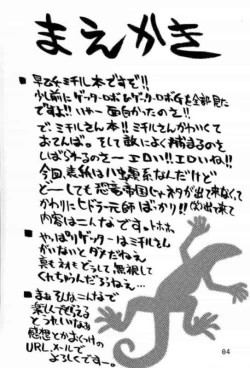 まえがき
■ 早乙女ミチル本ですぞ!!
少し前にゲッターロボ&ゲッターロボGを全部見た
ですよ!! いやー面白かったのさ!!
で、ミチルさん本!! ミチルさんかわいくて
おてんば。そして敵によく捕まるのさ
しばられるのさー エロい!! エロいね!!
今回、表紙がハ虫類系なんだけど
どーしても恐竜帝国じゃネタが出て来なくて
かわりにヒドラー元帥ばっかり!! (笑)出て来て
内容はこんなです。トホホ、
■ やっぱりゲッターはミチルさん
がいないとダメだねぇ
■ まぁそんなこんなで
楽しんでもらえる
とうれしいなぁ
感想とかまくっけの
URL、メールで
よろしくですー。
04